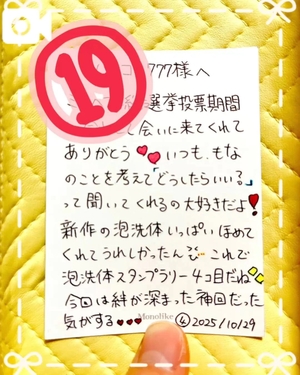 19
777様へ
選挙投票期間
会いに来てくれて
ありがとう いつも、もな
のことを考えて「どうしたらいい?」
って聞いてくれるの大好きだよ
新作の泡洗体いっぱいほめて
くれてうれしかったん これで
泡洗体スタンプラリー4コ目だね
今回は絆が深まった神回だった
気がする
Monolike
④ 2025/10/29